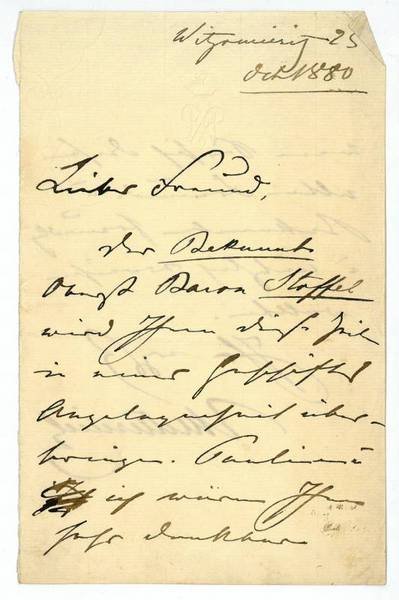 25
Oct. 1880
Lieber Freund,
der Bekannte
Oberst Baron Stoffel
wird Ihnen diese Zeilen
in einer Geschäfts
Angelegenheit über-
bringen. Pauline u
ich wären Ihnen
sehr dankbar